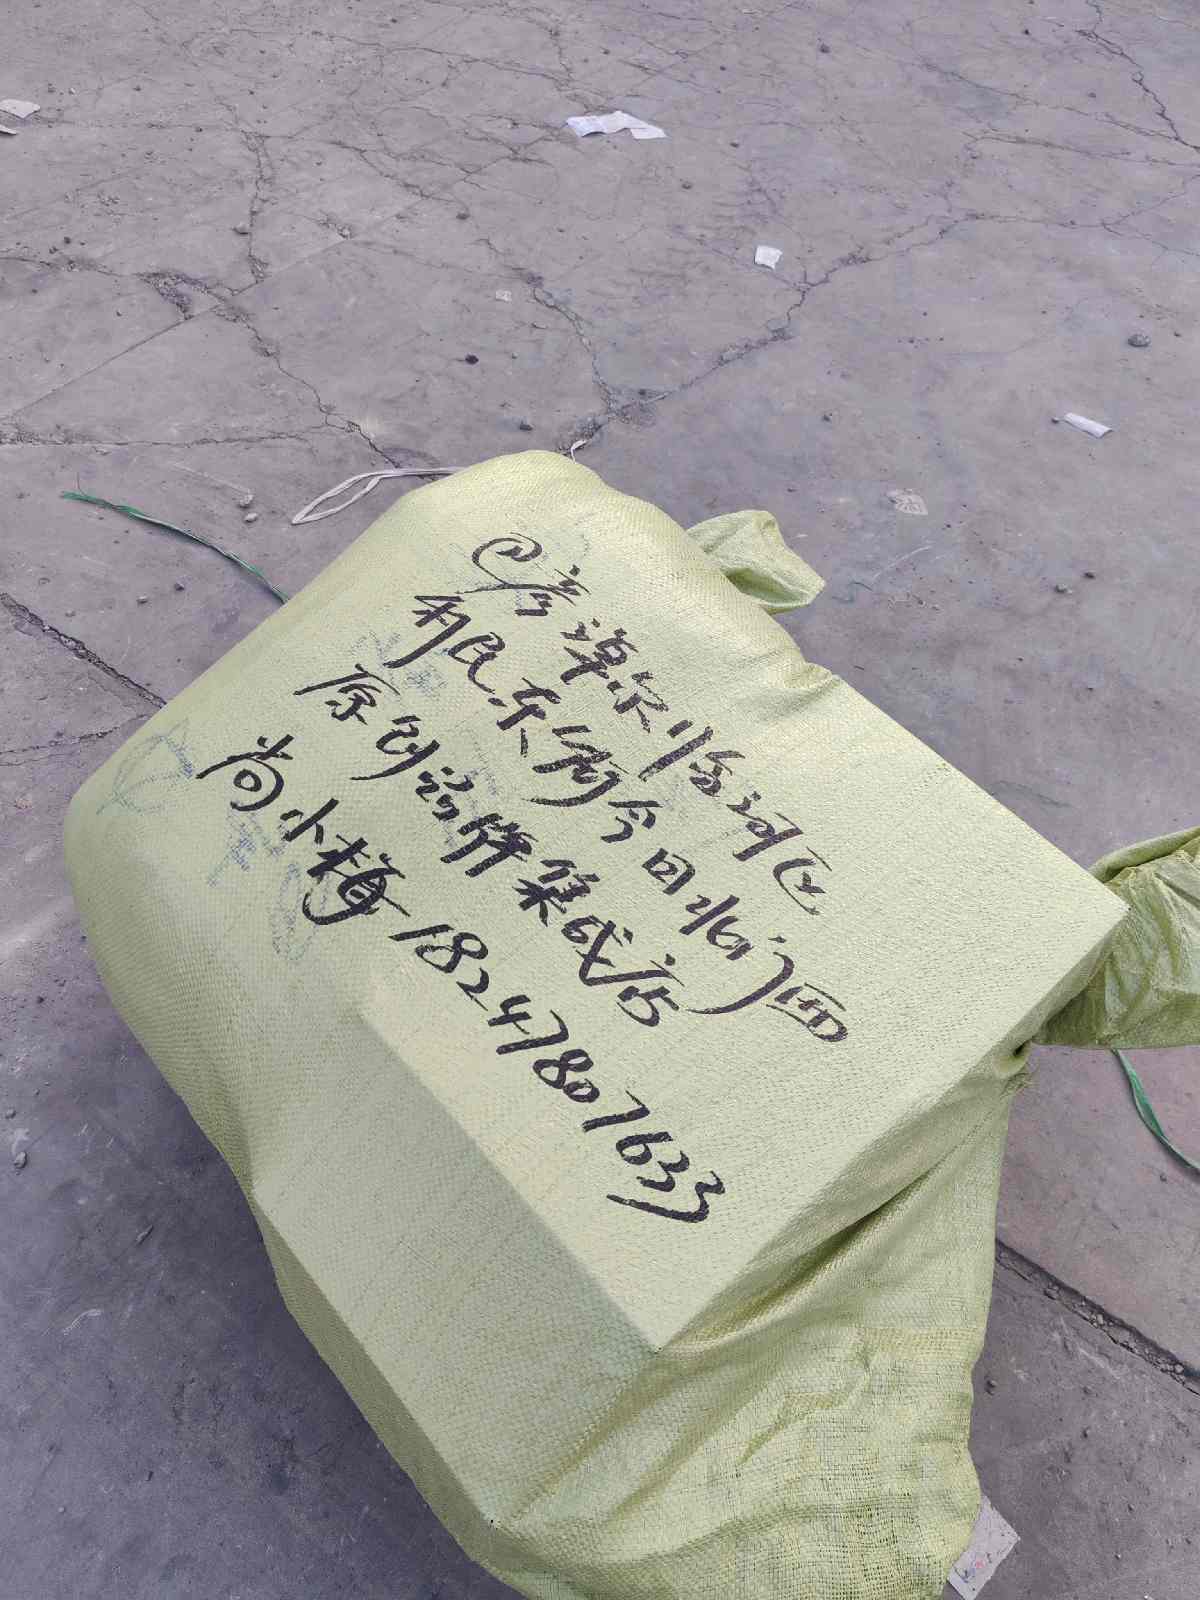 巴彦淖尔临河区
利民东街今日北门面
原创品牌集成店
尚小梅 18247807633